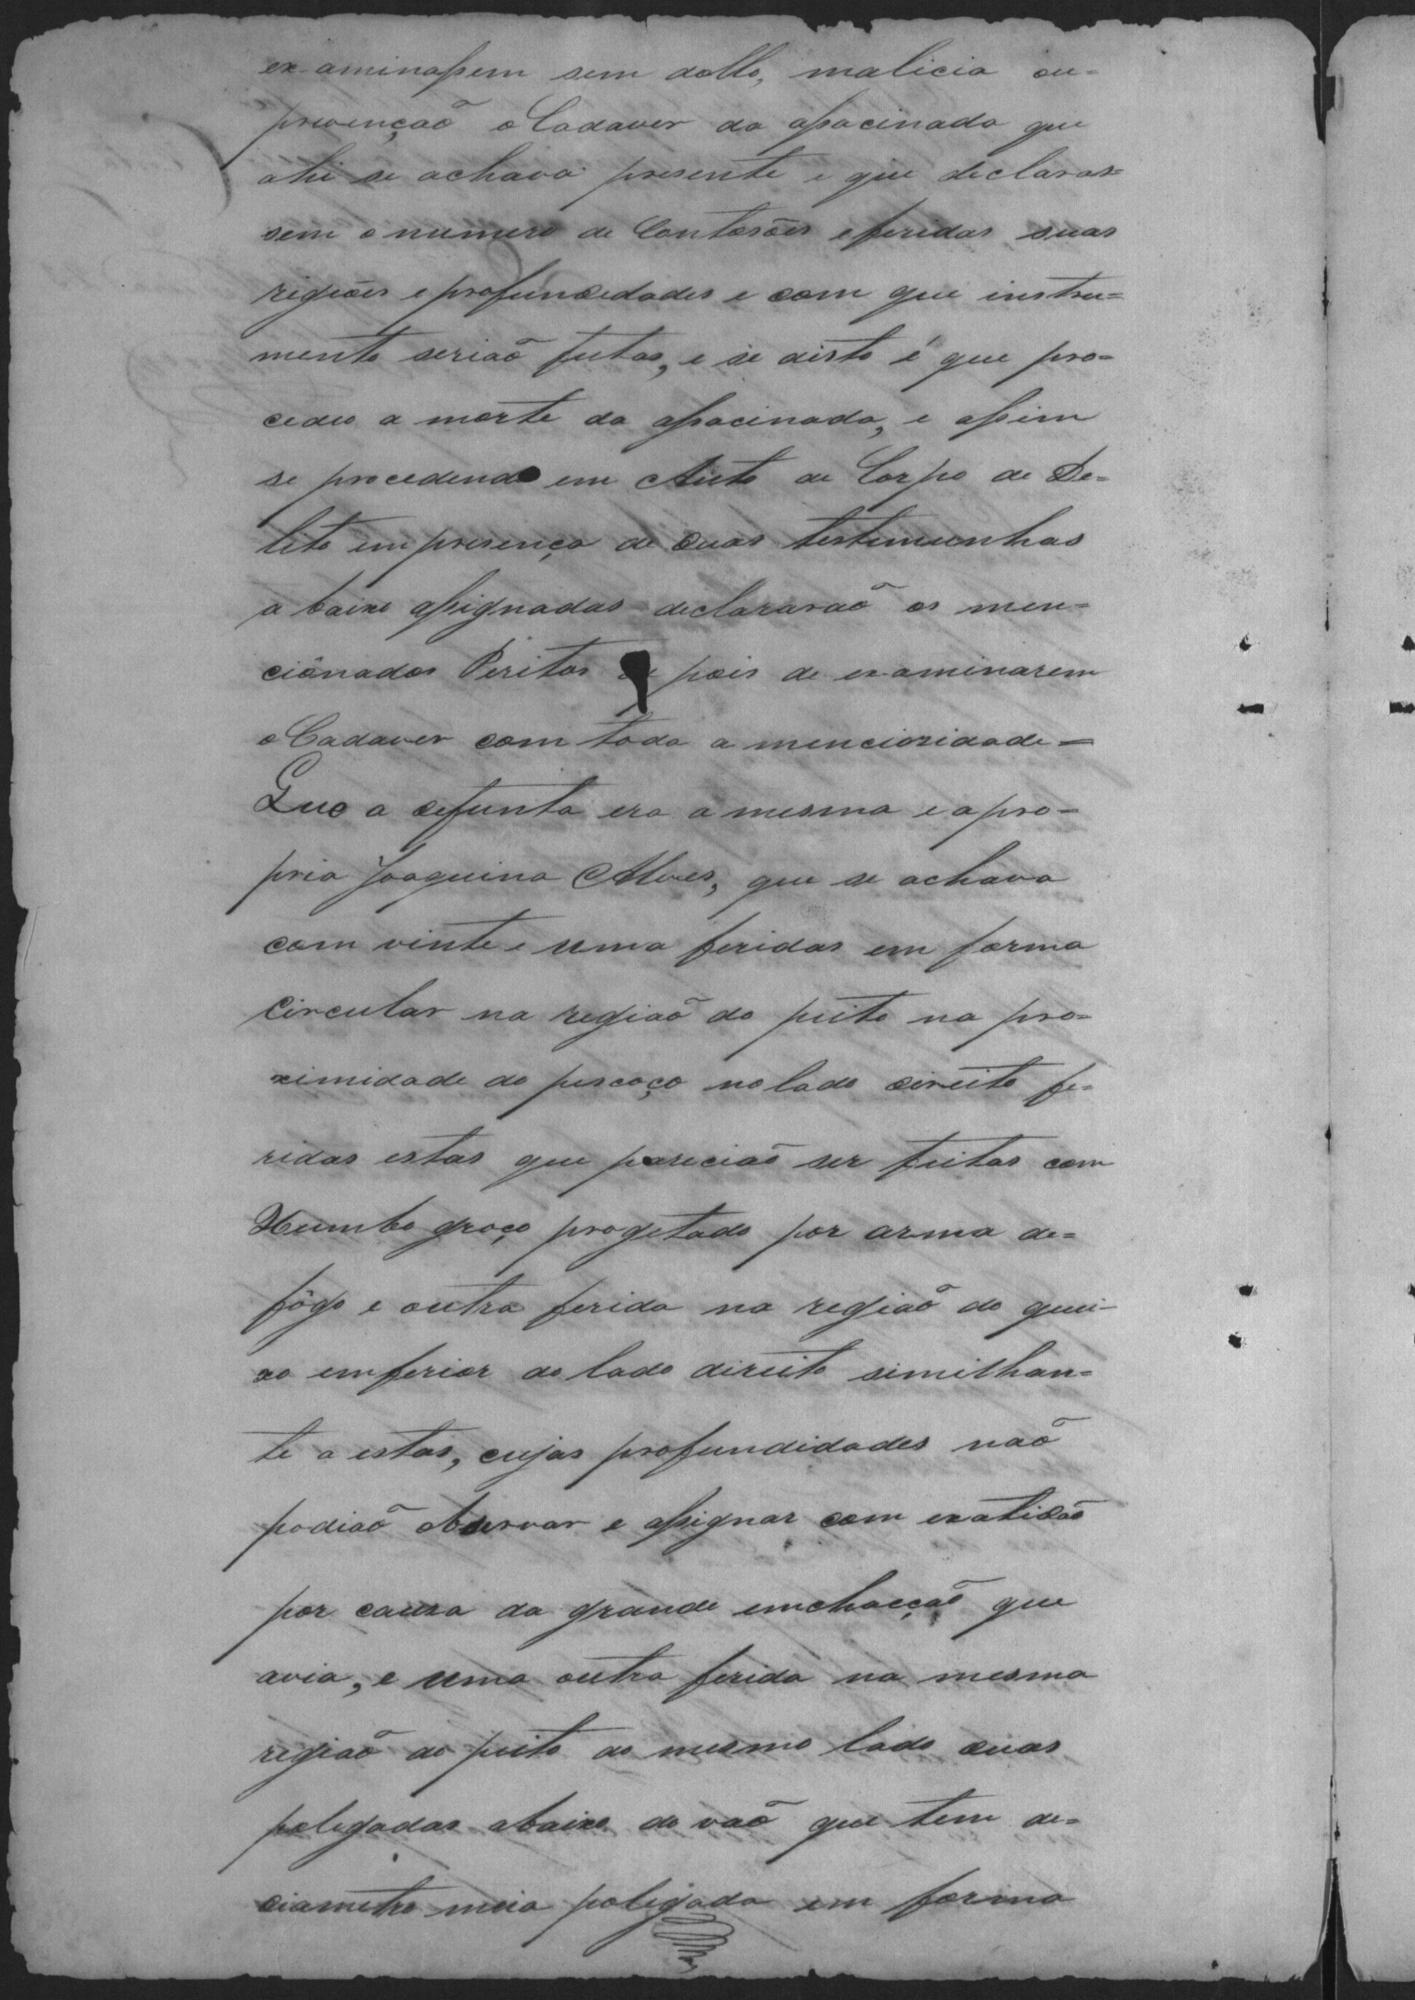 examinassem sem dollo, malicia ou=
prevençaõ o Cadaver da assacinada que
ahi se achava presente e que declaras=
sem o numero de Contosões e feridas suas
regiões e profundedades e com que instru=
mento seriaõ feitas, e se disto é que pro=
cedeo a morte da assacinada, e assim
se procedendo em Auto de Corpo de De=
lito em presença de duas testemunhas
abaixo assignadas declararaõ os men=
cionados Peritos de pois de examinarem
o Cadaver com toda a mencioridade=
Que a defunta era a mesma e a pro=
pria Joaquina Alves, que se achava
com vinte e uma feridas em forma
Circular na regiaõ do peito na pro=
ximidade do pescoço no lado direito fe=
ridas estas que pareciaõ ser feitas com
Xumbo groço progetado por arma de=
fôgo e outra ferida na regiaõ do quei-
xo emferior do lado direito similhan=
te a estas, cujas profundidades naõ
podiaõ observar e assignar com exatidaõ
por causa da grande emchacçaõ que
avia, e uma outra ferida na mesma
regiaõ do peito do mesmo lado duas
polegadas abaixo do vaõ que tem de=
diametro meia polegada em forma